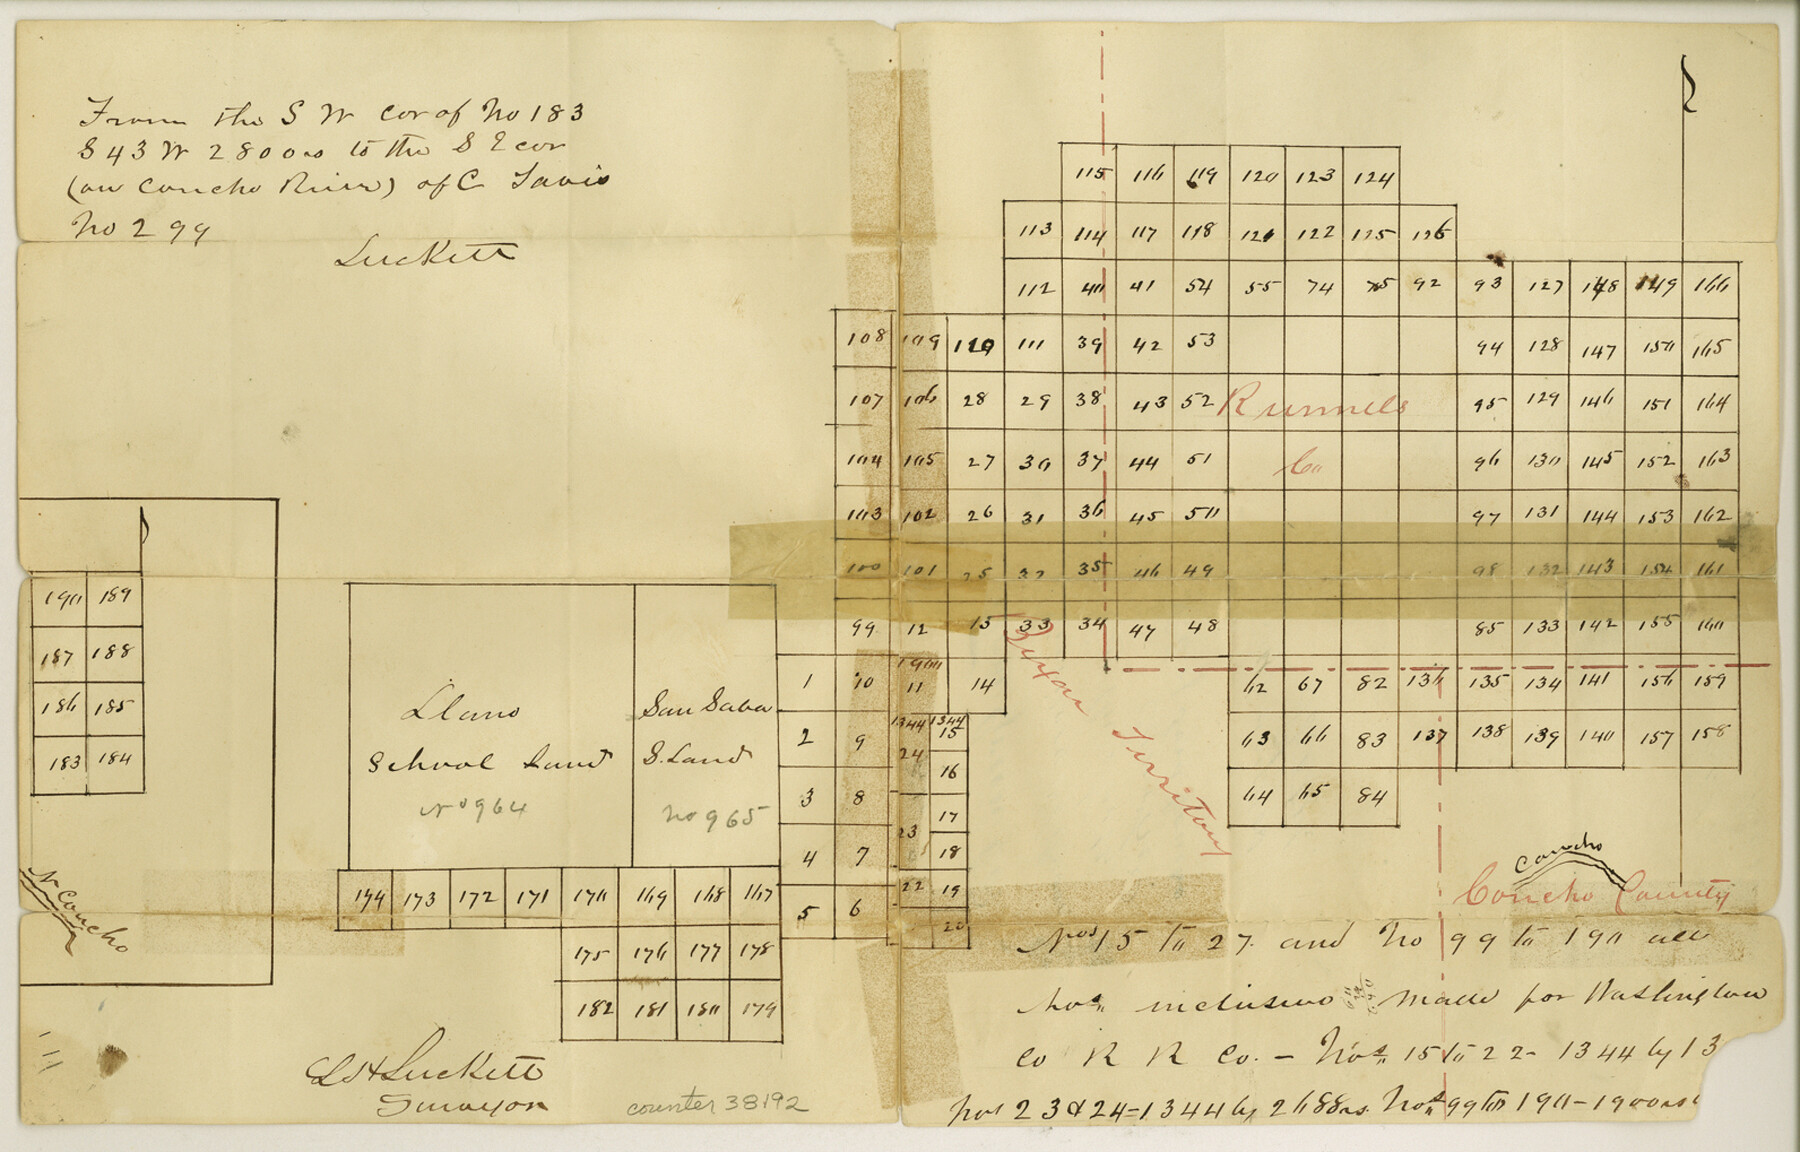 From the S W cor of No 183
S 43 W 2800 vs to the S E cor
(on Concho River) of C Tavis
No 299
Luckett
115 116 119 120 123 124
113 114 117 118 121 122 125 126
112 40 41 54 55 74 75 92 93 127 148 149 166
108 109 110 111 39 42 53 94 128 147 150 165
107 106 28 29 38 43 52 Runnels 95 129 146 151 164
104 105 27 30 37 44 51 Co 96 130 145 152 163
103 102 26 31 36 45 50 97 131 144 153 162
100 101 25 32 35 46 49 98 132 143 154 161
99 12 15 33 34 47 48 85 133 142 155 160
1900
1 10 11 14 62 67 82 136 135 134 141 156 159
1344 1344
2 9 24 15 63 66 83 137 138 139 140 157 158
16
3 8 64 65 84
23 17
4 7 18
22 19
5 6 20
Bexar Territory
190 189
187 188
186 185
183 184
N Concho
Llano
School Land
No 964
San Saba
S. Land
No 965
174 173 172 171 170 169 168 167
175 176 177 178
182 181 180 179
Concho
Concho County
Nos 15 to 27 and No 99 to 190 all
Nos inclusive made for Washington
Co R R Co. – Nos 15 to 22 – 1344 by 13
Nos 23 & 24 = 1344 by 2688 vs. Nos 99 to 190 – 1900 vs
Luckett
Surveyor
counter 38192